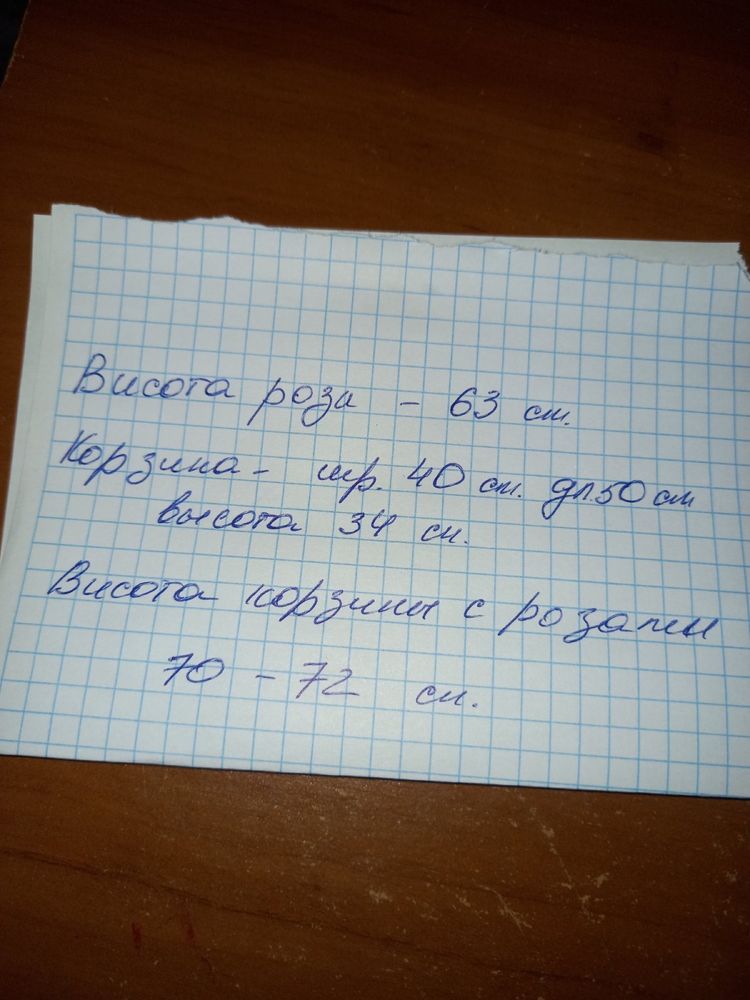 Висота роза - 63 см.
Корзина - шр. 40 см. дл.50 см
высота 34 см.
Висота корзины с розами
70 - 72 см.